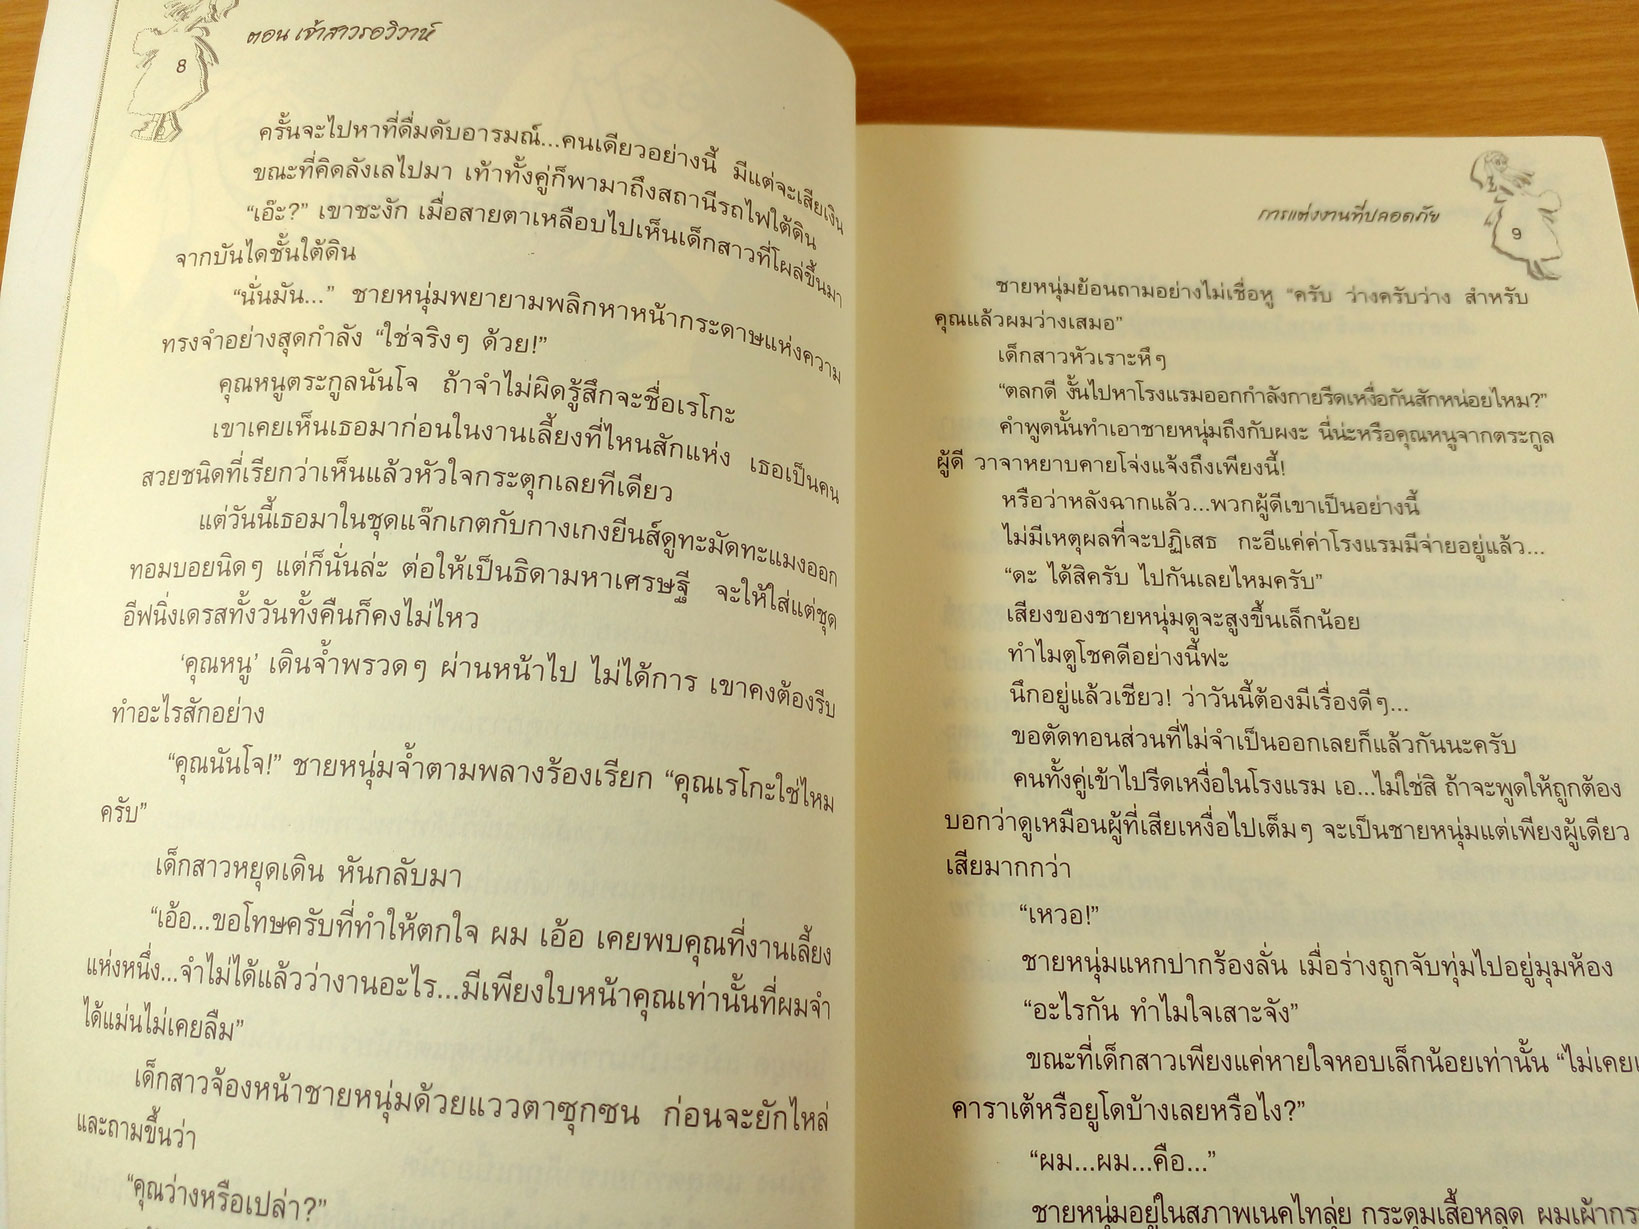 ตอน เจ้าสาวรอวิวาห์
8
ครั้นจะไปหาที่ดื่มดับอารมณ์...คนเดียวอย่างนี้ มีแต่จะเสียเงิน
ขณะที่คิดลังเลไปมา เท้าทั้งคู่ก็พามาถึงสถานีรถไฟใต้ดิน
“เอ๊ะ?” เขาชะงัก เมื่อสายตาเหลือบไปเห็นเด็กสาวที่โผล่ขึ้นมา
จากบันไดชั้นใต้ดิน
“นั่นมัน...” ชายหนุ่มพยายามพลิกหาหน้ากระดาษแห่งความ
ทรงจำอย่างสุดกำลัง “ใช่จริงๆ ด้วย!”
คุณหนูตระกูลนันโจ ถ้าจำไม่ผิดรู้สึกจะชื่อเรโกะ
เขาเคยเห็นเธอมาก่อนในงานเลี้ยงที่ไหนสักแห่ง เธอเป็นคน
สวยชนิดที่เรียกว่าเห็นแล้วหัวใจกระตุกเลยทีเดียว
แต่วันนี้เธอมาในชุดแจ๊กเกตกับกางเกงยีนส์ดูทะมัดทะแมงออก
ทอมบอยนิดๆ แต่ก็นั่นล่ะ ต่อให้เป็นธิดามหาเศรษฐี จะให้ใส่แต่ชุด
อีฟนิ่งเดรสทั้งวันทั้งคืนก็คงไม่ไหว
‘คุณหนู’ เดินจ้ำพรวดๆ ผ่านหน้าไป ไม่ได้การ เขาคงต้องรีบ
ทำอะไรสักอย่าง
“คุณนันโจ!” ชายหนุ่มจ้ำตามพลางร้องเรียก “คุณเรโกะใช่ไหม
ครับ”
เด็กสาวหยุดเดิน หันกลับมา
“เอ้อ...ขอโทษครับที่ทำให้ตกใจ ผม เอ้อ เคยพบคุณที่งานเลี้ยง
แห่งหนึ่ง...จำไม่ได้แล้วว่างานอะไร...มีเพียงใบหน้าคุณเท่านั้นที่ผมจำ
ได้แม่นไม่เคยลืม”
เด็กสาวจ้องหน้าชายหนุ่มด้วยแววตาซุกซน ก่อนจะยักไหล่
และถามขึ้นว่า
“คุณว่างหรือเปล่า?”
การแต่งงานที่ปลอดภัย
9
ชายหนุ่มย้อนถามอย่างไม่เชื่อหู “ครับ ว่างครับว่าง สำหรับ
คุณแล้วผมว่างเสมอ”
เด็กสาวหัวเราะหึๆ
“ตลกดี งั้นไปหาโรงแรมออกกำลังกายรีดเหงื่อกันสักหน่อยไหม?”
คำพูดนั้นทำเอาชายหนุ่มถึงกับผงะ นี่น่ะหรือคุณหนูจากตระกูล
ผู้ดี วาจาหยาบคายโจ่งแจ้งถึงเพียงนี้!
หรือว่าหลังฉากแล้ว...พวกผู้ดีเขาเป็นอย่างนี้
ไม่มีเหตุผลที่จะปฏิเสธ กะอีแค่ค่าโรงแรมมีจ่ายอยู่แล้ว...
“ดะ ได้สิครับ ไปกันเลยไหมครับ”
เสียงของชายหนุ่มดูจะสูงขึ้นเล็กน้อย
ทำไมตูโชคดีอย่างนี้ฟะ
นึกอยู่แล้วเชียว! ว่าวันนี้ต้องมีเรื่องดีๆ...
ขอตัดทอนส่วนที่ไม่จำเป็นออกเลยก็แล้วกันนะครับ
คนทั้งคู่เข้าไปรีดเหงื่อในโรงแรม เอ...ไม่ใช่สิ ถ้าจะพูดให้ถูกต้อง
บอกว่าดูเหมือนผู้ที่เสียเหงื่อไปเต็มๆ จะเป็นชายหนุ่มแต่เพียงผู้เดียว
เสียมากกว่า
“เหวอ!”
ชายหนุ่มแหกปากร้องลั่น เมื่อร่างถูกจับทุ่มไปอยู่มุมห้อง
“อะไรกัน ทำไมใจเสาะจัง”
ขณะที่เด็กสาวเพียงแค่หายใจหอบเล็กน้อยเท่านั้น “ไม่เคย
คาราเต้หรือยูโดบ้างเลยหรือไง?”
“ผม...ผม...คือ...”
ชายหนุ่มอยู่ในสภาพเนคไทลุ่ย กระดุมเสื้อหลุด ผมเผ้า